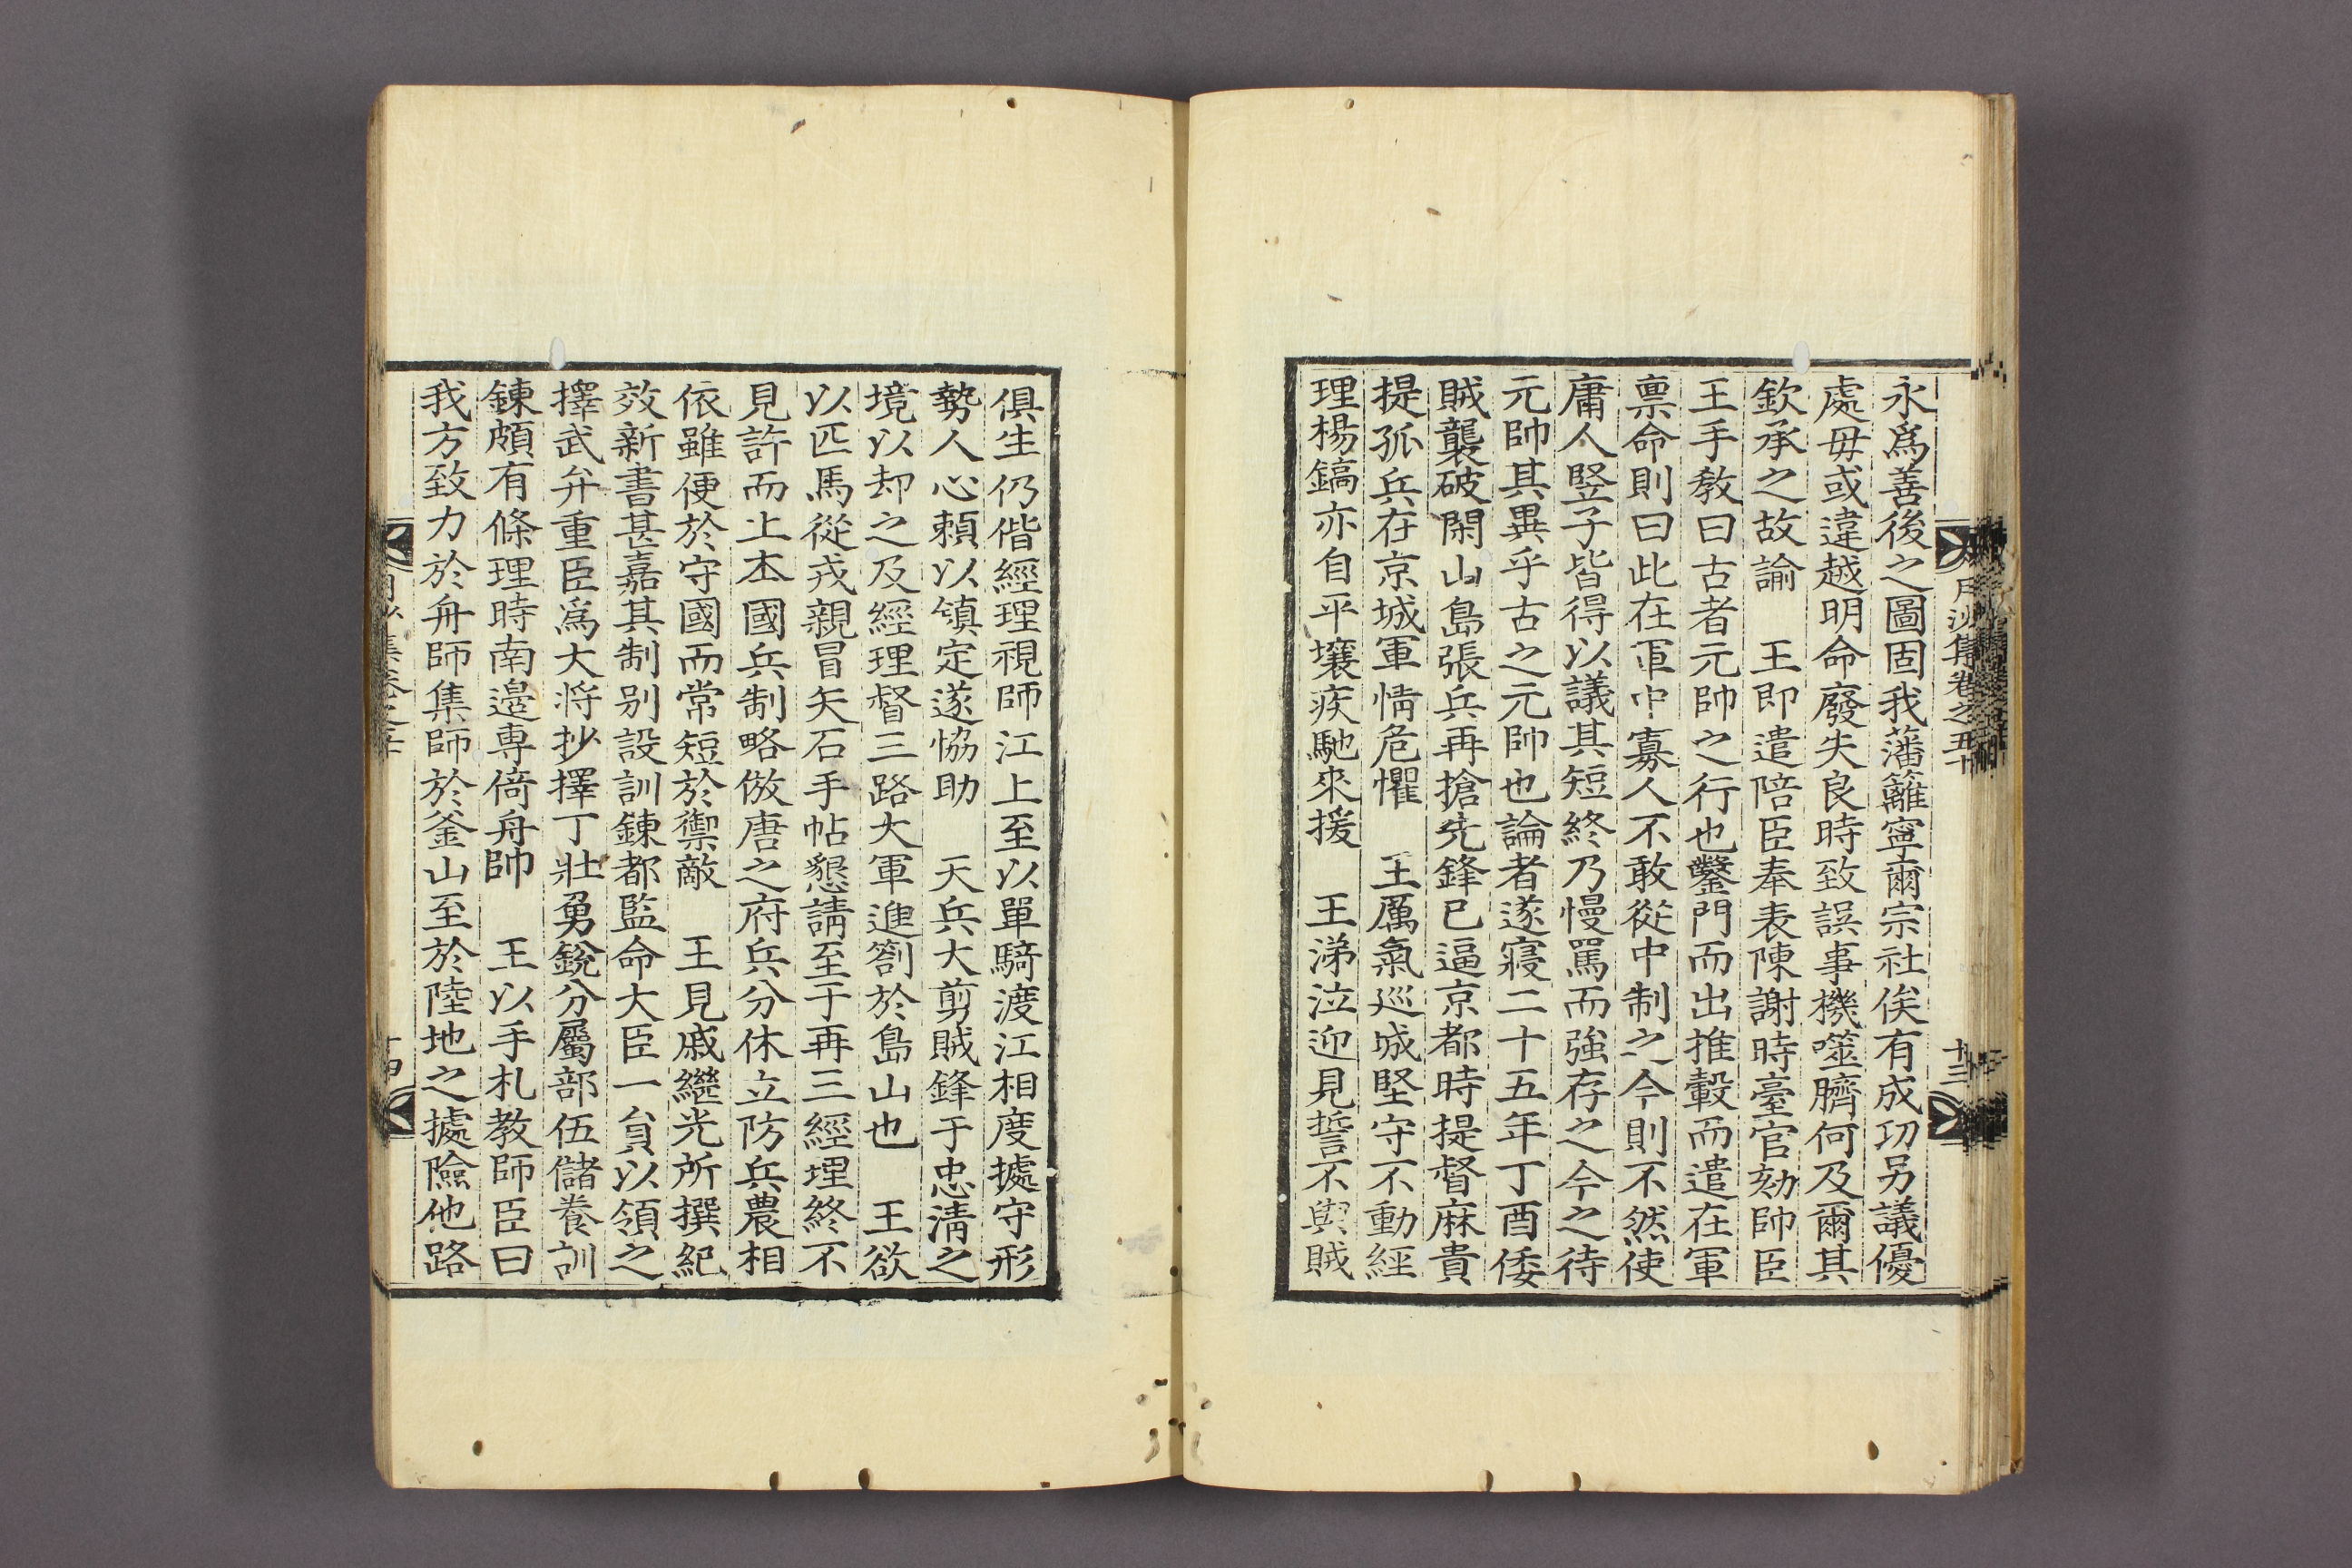 永爲善後之圖固我藩籬寧爾宗社俟有成功另議優
處毋或違越明命廢失良時致誤事機噬臍何及爾其
欽承之故諭　王即遣陪臣奉表陳謝時臺官劾帥臣
王手敎曰古者元帥之行也鑿門而出推轂而遣在軍
禀命則曰此在軍中寡人不敢從中制之今則不然使
庸人竪子皆得以議其短終乃慢罵而強存之今之待
元帥其異乎古之元帥也論者遂寢二十五年丁酉倭
賊襲破閑山島張兵再搶先鋒已逼京都時提督麻貴
提孤兵在京城軍情危懼　王厲氣巡城堅守不動經
理楊鎬亦自平壤疾馳來援　王涕泣迎見誓不與賊
月沙集卷之五十
十三
俱生仍偕經理視師江上至以單騎渡江相度據守形
勢人心頼以鎭定遂恊助　天兵大剪賊鋒于忠淸之
境以却之及經理督三路大軍進劄於島山也　王欲
以匹馬從戎親冒矢石手帖懇請至于再三經理終不
見許而止本國兵制略倣唐之府兵分休立防兵農相
依雖便於守國而常短於禦敵　王見戚繼光所撰紀
效新書甚嘉其制别設訓鍊都監命大臣一負以領之
擇武弁重臣爲大將抄擇丁壯勇銳分屬部伍儲養訓
鍊頗有條理時南邊專倚舟帥　王以手札教師臣曰
我方致力於舟師集師於釜山至於陸地之據險他路
月沙集卷之五十
十四